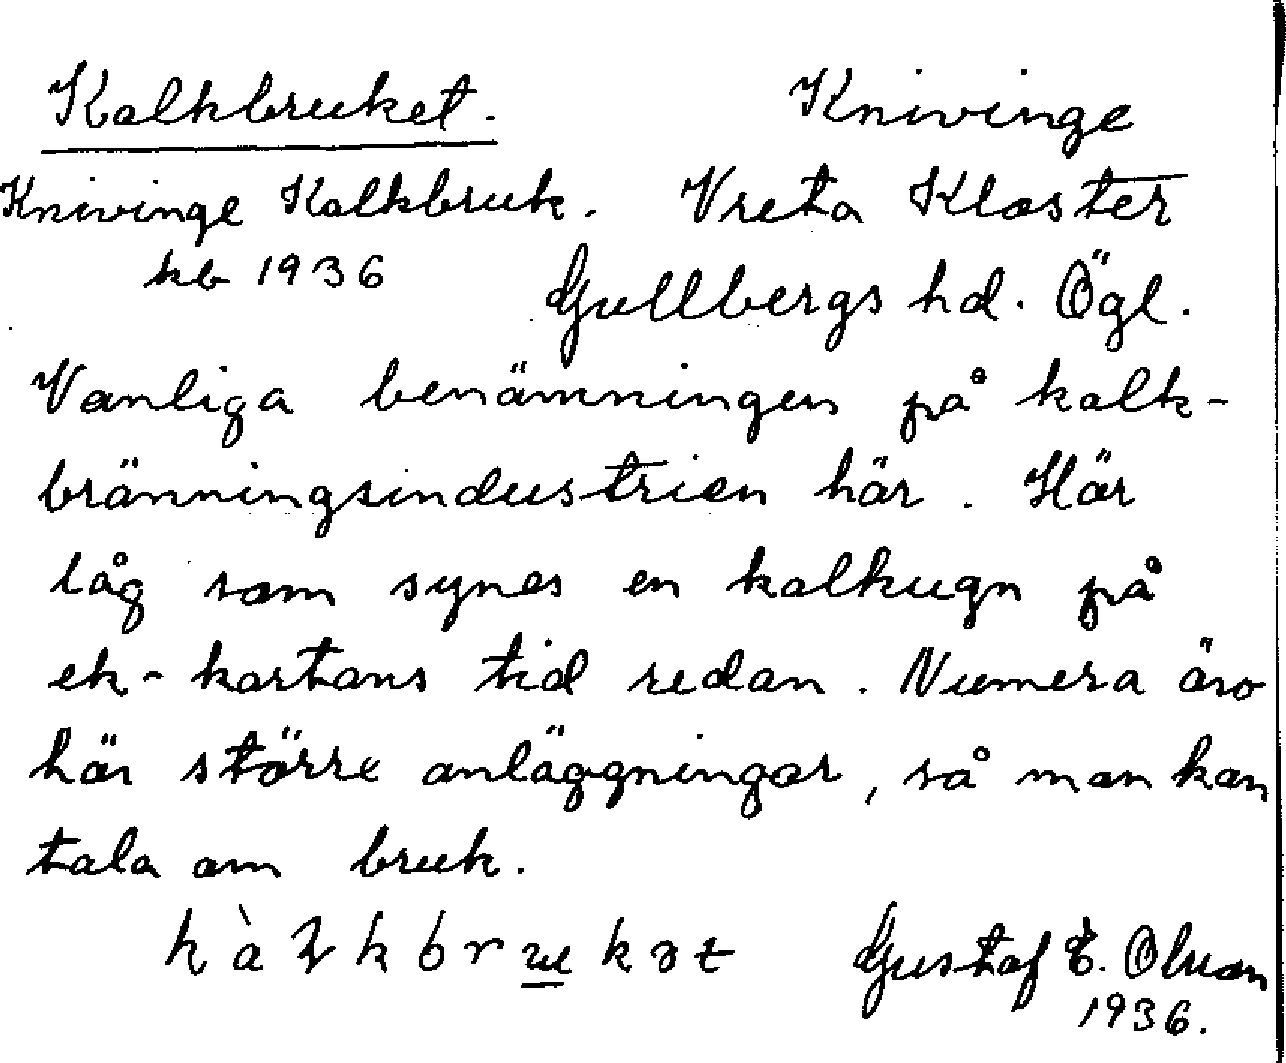 Kalkbruket. Knivinge
Knivinge Kalkbruk. Vreta Kloster
kb 1936 Gullbergs hd. Ögl.
Vanliga benämningen på kalk-
bränningsindustrien här. Här
låg som synes en kalkugn på
ek-kartans tid redan. Numera äro
här större anläggningar, så man kan
tala om bruk.
Gustaf E. Olson
1936.